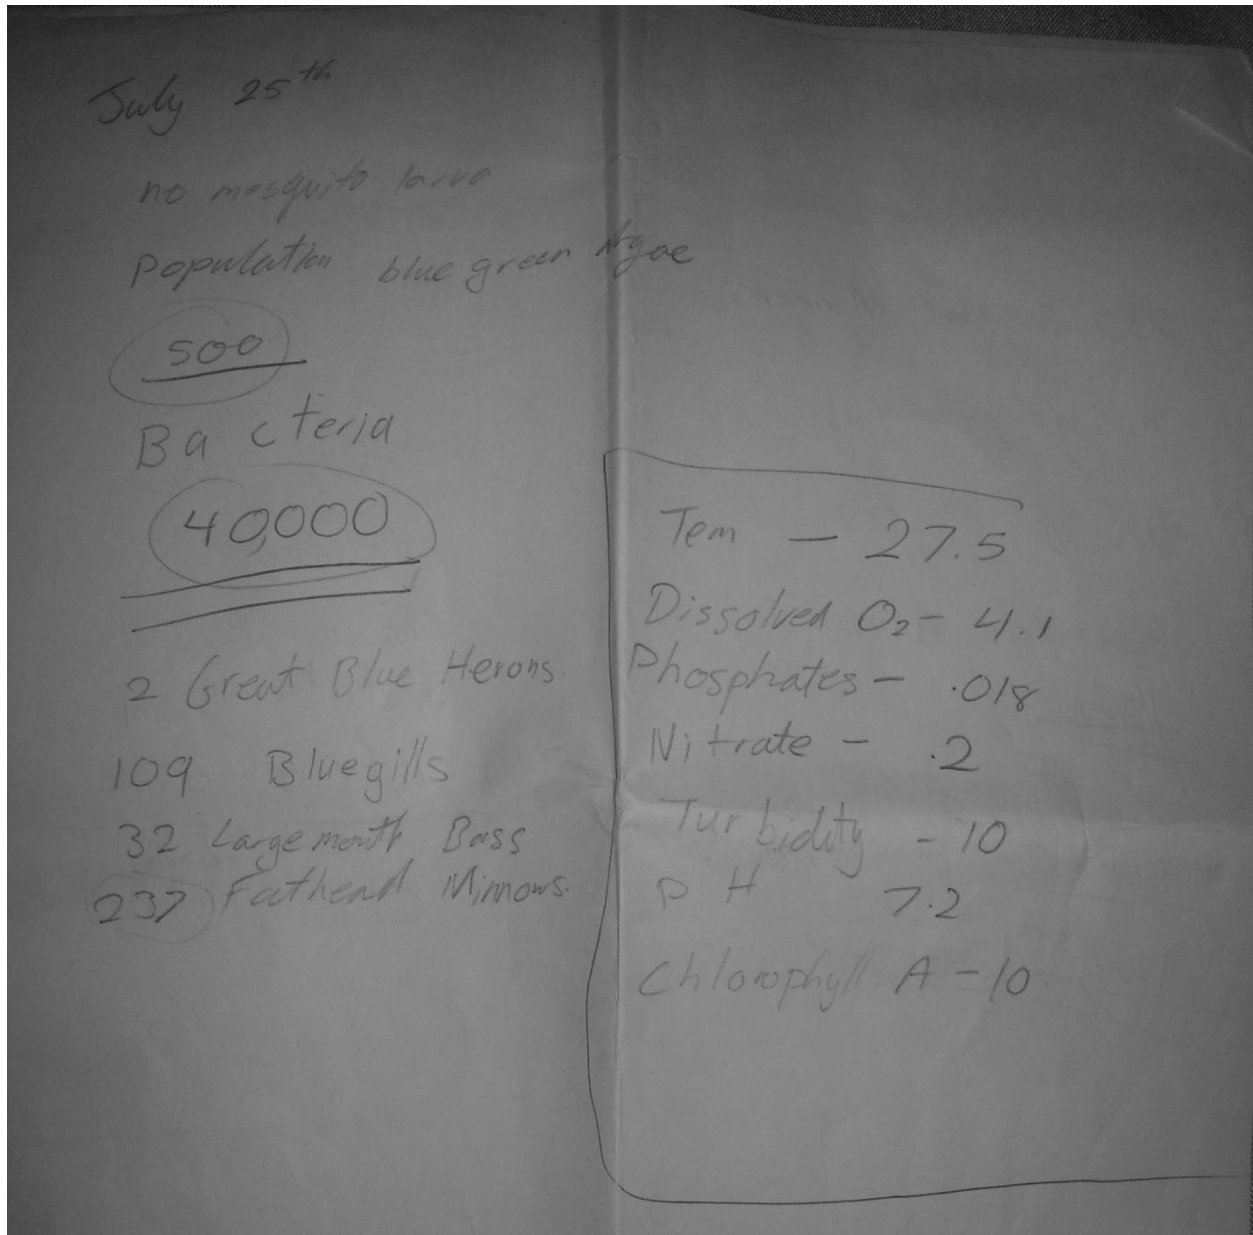 July 25th
no mosquito larva
Population blue green Algae
500
Bacteria
40,000
2 Great Blue Herons.
109 Bluegills
32 Largemouth Bass
237 Fathead Minnows.
Tem - 27.5
Dissolved O2 - 4.1
Phosphates - .018
Nitrate - .2
Turbidity - 10
PH 7.2
Chlorophyll A - 10